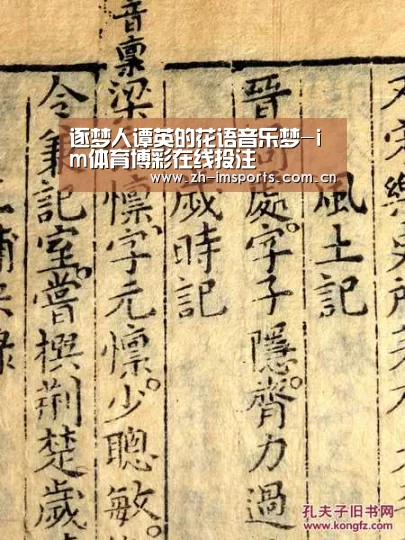 又[?]樂史所[?]
風土記
晉周處字子隱。膂力過
歲時記
音稟
梁[?]懍字元懍。少聰敏。
令兼記室。嘗撰荆楚歲
逐梦人谭英的花语音乐梦—i
m体育博彩在线投注
www.zh-imsports.com.cn
孔夫子旧书网
www.kongfz.com